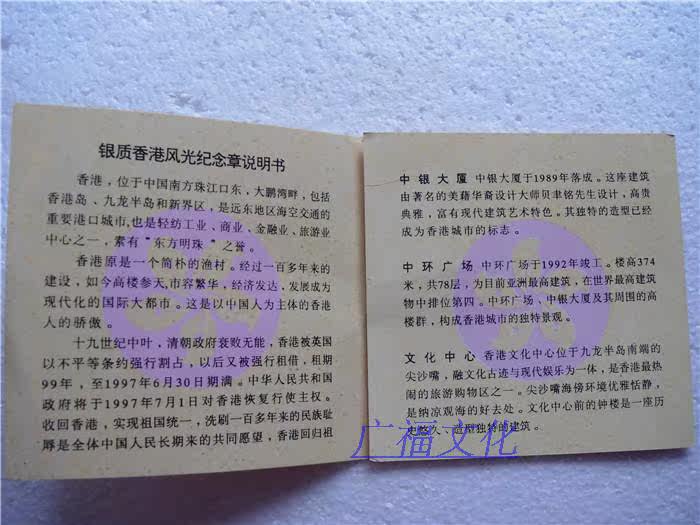 银质香港风光纪念章说明书
香港，位于中国南方珠江口东，大鹏湾畔，包括
香港岛、九龙半岛和新界区，是远东地区海空交通的
重要港口城市，也是轻纺工业、商业、金融业、旅游业
中心之一，素有“东方明珠”之誉。
香港原是一个简朴的渔村。经过一百多年来的
建设，如今高楼参天，市容繁华，经济发达，发展成为
现代化的国际大都市。这是以中国人为主体的香港
人的骄傲。
十九世纪中叶，清朝政府衰败无能，香港被英国
以不平等条约强行割占，以后又被强行租借，租期
99年，至1997年6月30日期满。中华人民共和国
政府将于1997年7月1日对香港恢复行使主权。
收回香港，实现祖国统一，洗刷一百多年来的民族耻
辱是全体中国人民长期来的共同愿望，香港回归祖
中银大厦 中银大厦于1989年落成。这座建筑
由著名的美藉华裔设计大师贝聿铭先生设计，高贵
典雅，富有现代建筑艺术特色。其独特的造型已经
成为香港城市的标志。
中环广场 中环广场于1992年竣工。楼高374
米，共78层，为目前亚洲最高建筑，在世界最高建筑
物中排位第四。中环广场、中银大厦及其周围的高
楼群，构成香港城市的独特景观。
文化中心 香港文化中心位于九龙半岛南端的
尖沙嘴，融文化古迹与现代娱乐为一体，是香港最热
闹的旅游购物区之一。尖沙嘴海傍环境优雅恬静，
是纳凉观海的好去处。文化中心前的钟楼是一座历
史悠久、造型独特的建筑。
广福文化